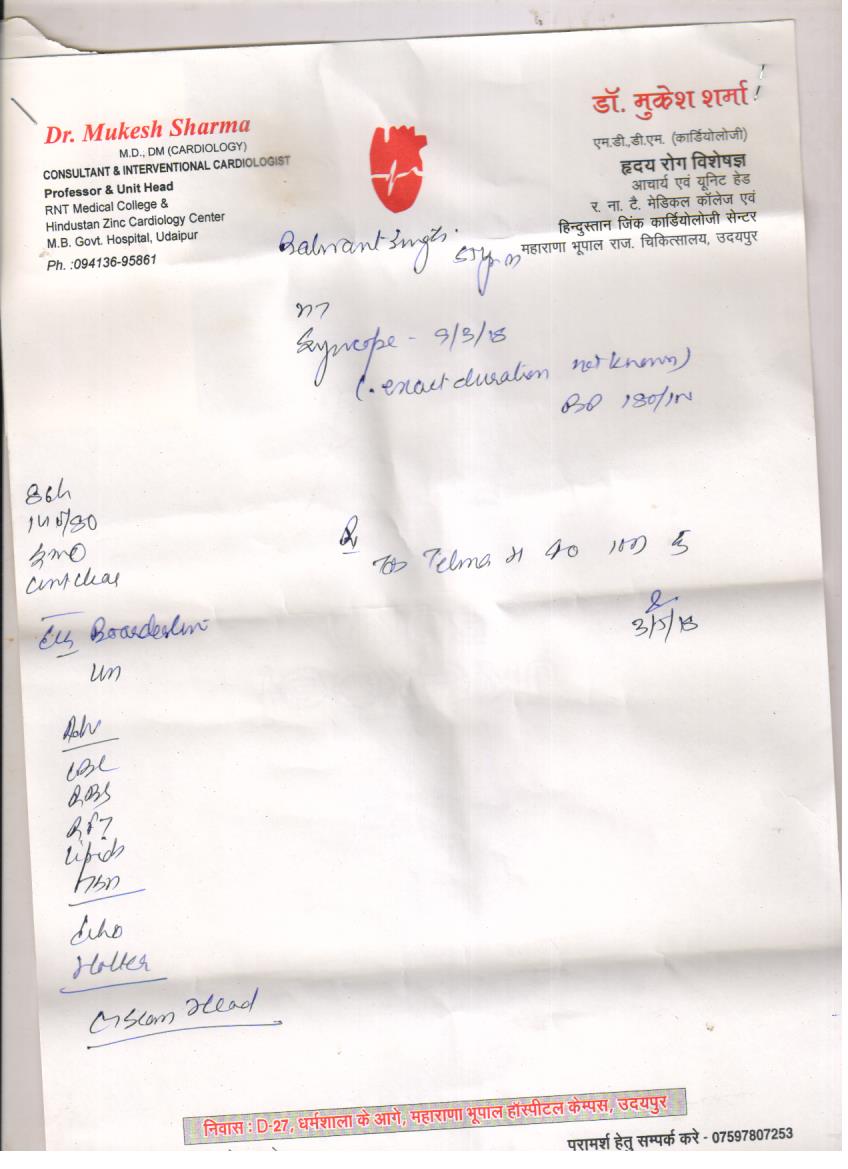 Dr. Mukesh Sharma
M.D., DM (CARDIOLOGY)
CONSULTANT & INTERVENTIONAL CARDIOLOGIST
Professor & Unit Head
RNT Medical College &
Hindustan Zinc Cardiology Center
M.B. Govt. Hospital, Udaipur
Ph. :094136-95861
डॉ. मुकेश शर्मा
एम.डी.,डी.एम. (कार्डियोलॉजी)
हृदय रोग विशेषज्ञ
आचार्य एवं यूनिट हेड
र. ना. टै. मेडिकल कॉलेज एवं
हिन्दुस्तान जिंक कार्डियोलॉजी सेन्टर
महाराणा भूपाल राज. चिकित्सालय, उदयपुर
Balwant Singh
Syncope - 9/3/18
(exact duration not known)
BP 180/100
Rx
Tab Telma 40
3/5/18
Adv
CBC
RBS
RFT
Lipids
Echo
Holter
CT Scan Head
निवास : D-27, धर्मशाला के आगे, महाराणा भूपाल हॉस्पीटल केम्पस, उदयपुर
परामर्श हेतु सम्पर्क करे - 07597807253